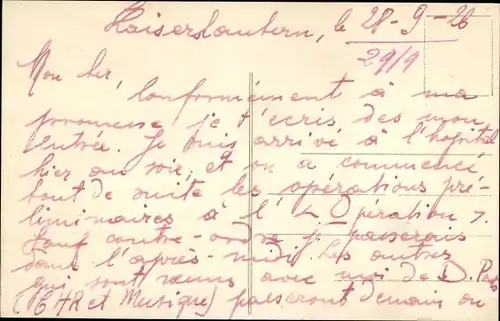 Kaiserslautern, le 28-9-26
29/9
Mon cher, Conformément à ma
promesse je t'écris dès mon
entrée. Je suis arrivé à l'hôpital
hier au soir, et on a commencé
tout de suite les opérations pré-
liminaires à l'« Opération ».
Sauf contre-ordre je passerais
dans l'après-midi. Les autres
qui sont venus avec moi de D.
(EHR et Musique) passeront demain ou